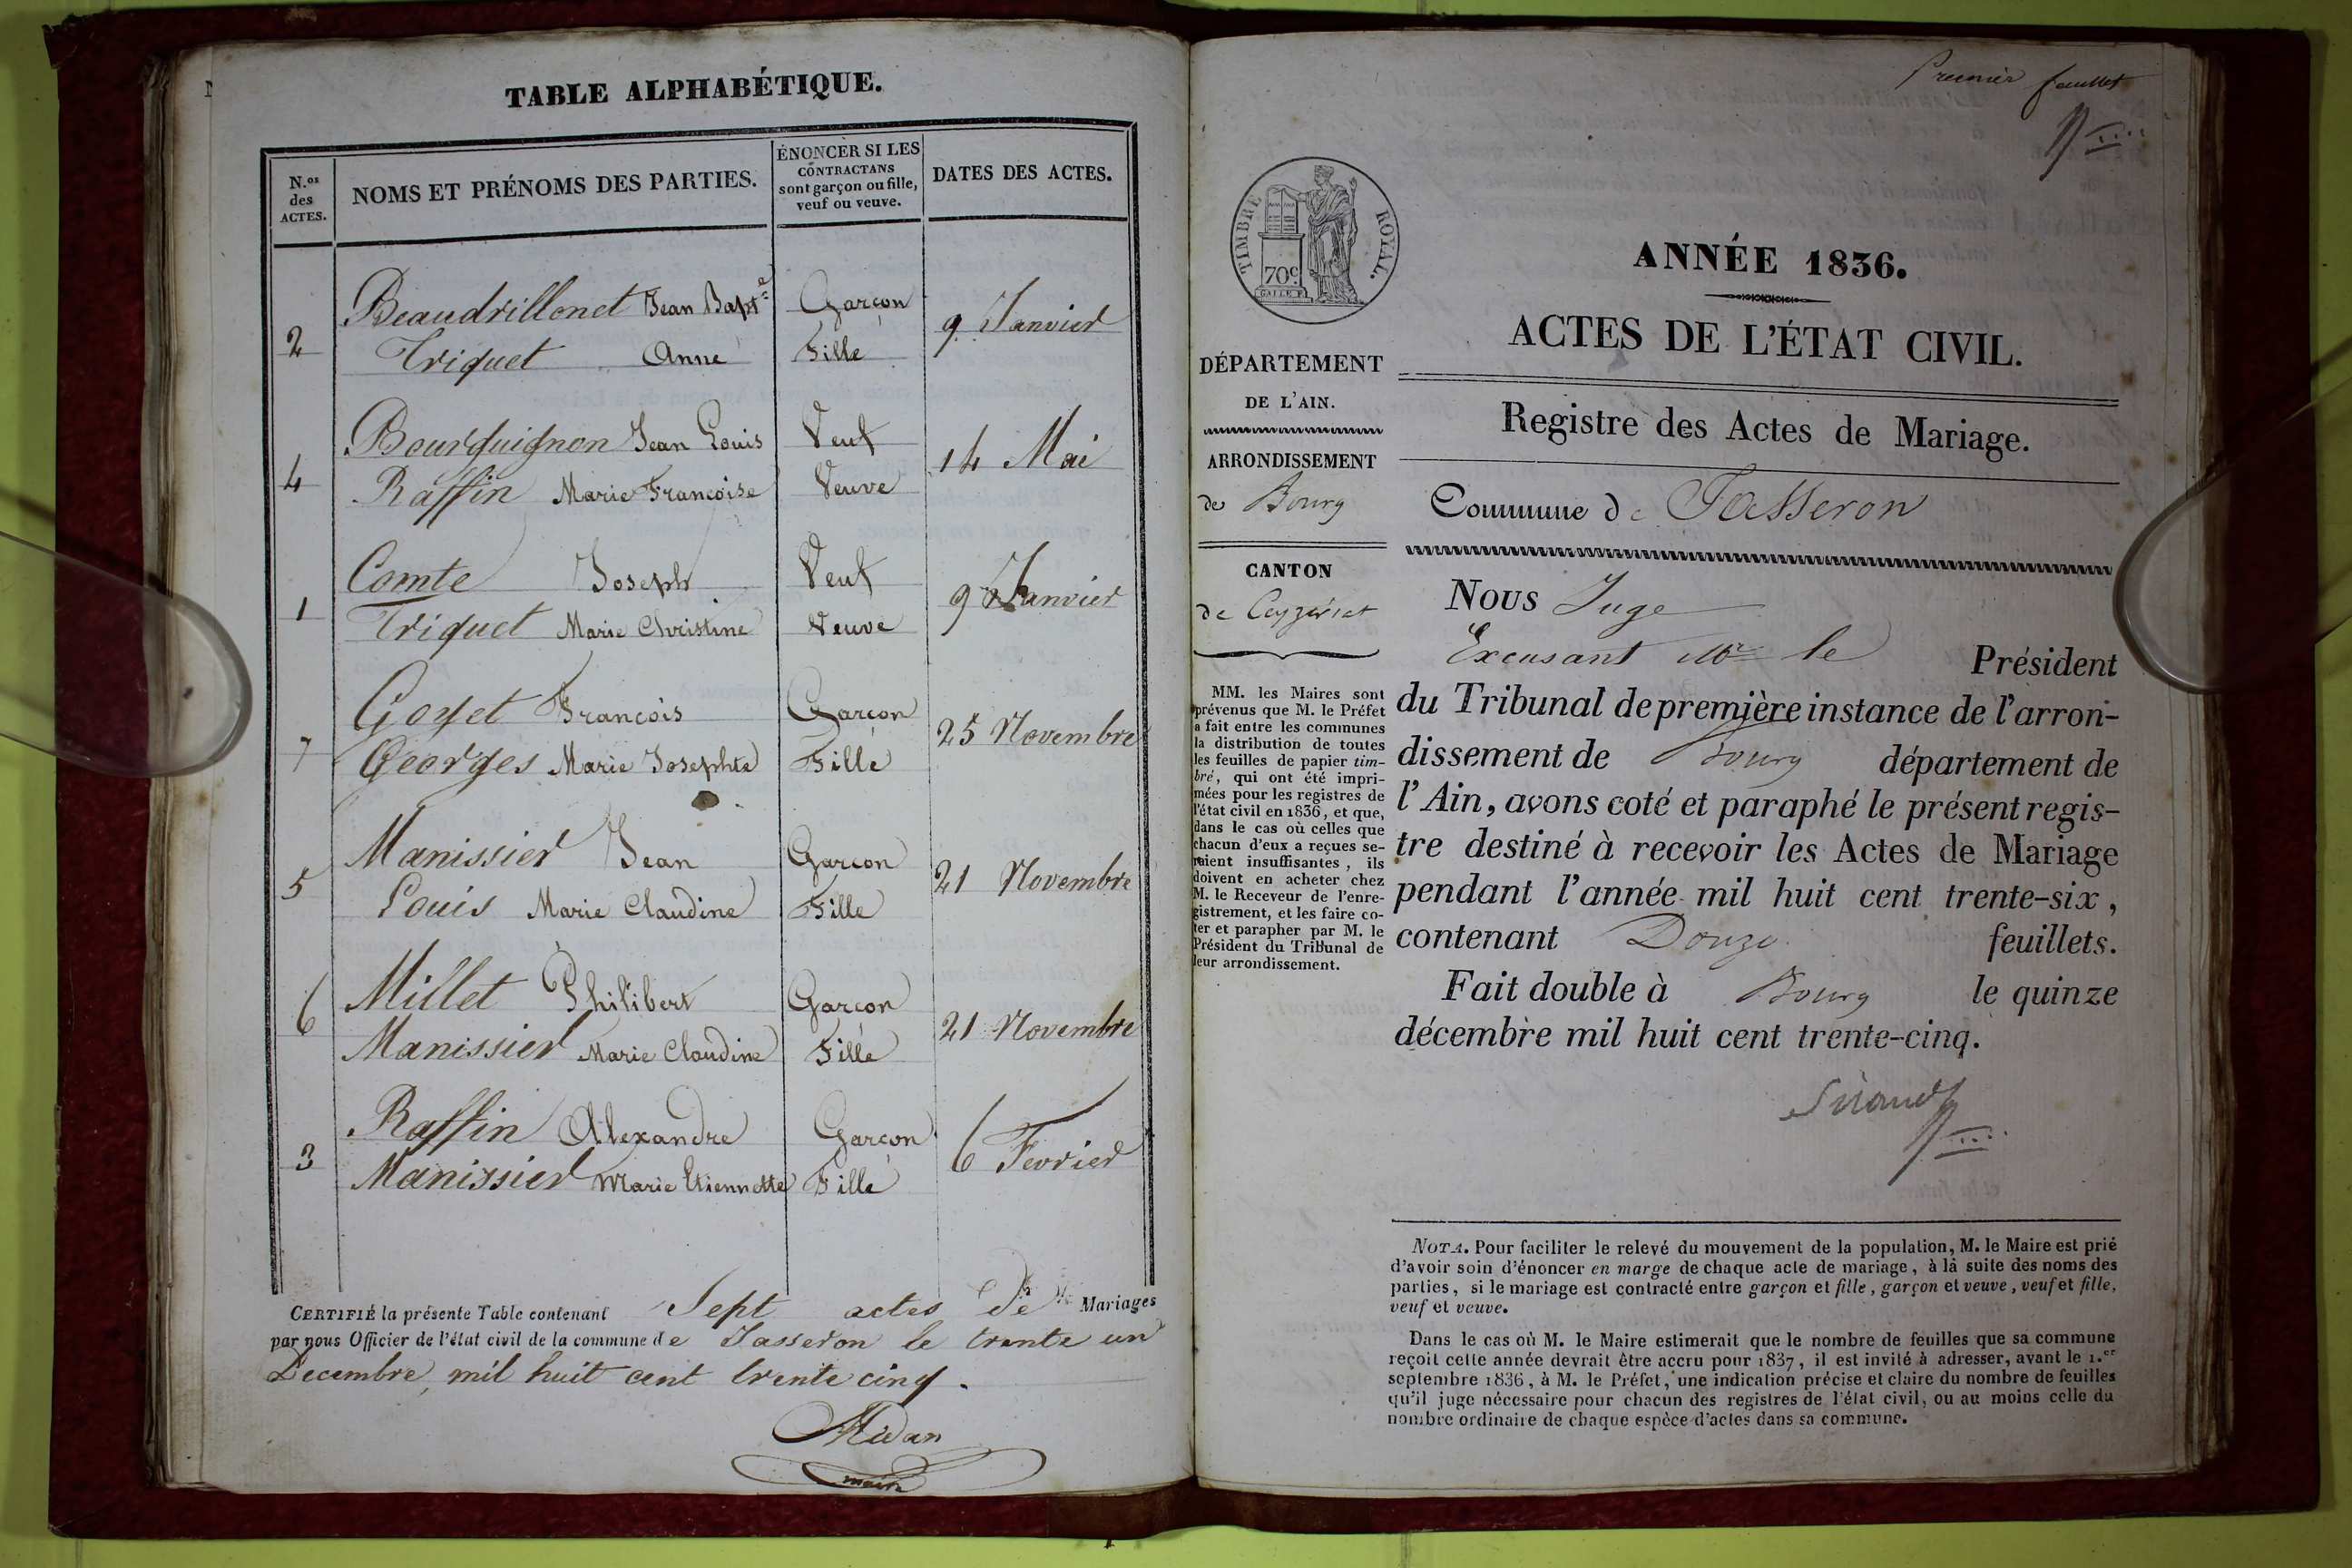 TABLE ALPHABÉTIQUE.
N.os des ACTES.
NOMS ET PRÉNOMS DES PARTIES.
ÉNONCER SI LES
CONTRACTANS
sont garçon ou fille,
veuf ou veuve.
DATES DES ACTES.
2
Beaudrillonet Jean Bapte Garçon
Triquet Anne Fille
9 Janvier
4
Bourguignon Jean Louis Veuf
Raffin Marie Françoise Veuve
14 Mai
1
Comte Joseph Veuf
Triquet Marie Christine Veuve
9 Janvier
7
Goyet François Garçon
Georges Marie Josephte Fille
25 Novembre
5
Manissier Jean Garçon
Louis Marie Claudine Fille
21 Novembre
6
Millet Philibert Garçon
Manissier Marie Claudine Fille
21 Novembre
3
Raffin Alexandre Garçon
Manissier Marie Etiennette Fille
6 Fevrier
CERTIFIÉ la présente Table contenant Sept actes de Mariages
par nous Officier de l'état civil de la commune de Jasseron le trente un
Decembre, mil huit cent trente cinq.
Midan
maire
Premier feuillet
TIMBRE ROYAL.
70c
ANNÉE 1836.
ACTES DE L'ÉTAT CIVIL.
DÉPARTEMENT
DE L'AIN.
ARRONDISSEMENT
de Bourg
CANTON
de Ceyzeriat
MM. les Maires sont
prévenus que M. le Préfet
a fait entre les communes
la distribution de toutes
les feuilles de papier tim-
bré, qui ont été impri-
mées pour les registres de
l'état civil en 1836, et que,
dans le cas où celles que
chacun d'eux a reçues se-
raient insuffisantes, ils
doivent en acheter chez
M. le Receveur de l'enre-
gistrement, et les faire co-
ter et parapher par M. le
Président du Tribunal de
leur arrondissement.
Registre des Actes de Mariage.
Commune de Jasseron
Nous Juge
Excusant Mr le Président
du Tribunal de première instance de l'arron-
dissement de Bourg département de
l'Ain, avons coté et paraphé le présent regis-
tre destiné à recevoir les Actes de Mariage
pendant l'année mil huit cent trente-six,
contenant Douze feuillets.
Fait double à Bourg le quinze
décembre mil huit cent trente-cinq.
NOTA. Pour faciliter le relevé du mouvement de la population, M. le Maire est prié
d'avoir soin d'énoncer en marge de chaque acte de mariage, à la suite des noms des
parties, si le mariage est contracté entre garçon et fille, garçon et veuve, veuf et fille,
veuf et veuve.
Dans le cas où M. le Maire estimerait que le nombre de feuilles que sa commune
reçoit cette année devrait être accru pour 1837, il est invité à adresser, avant le 1.er
septembre 1836, à M. le Préfet, une indication précise et claire du nombre de feuilles
qu'il juge nécessaire pour chacun des registres de l'état civil, ou au moins celle du
nombre ordinaire de chaque espèce d'actes dans sa commune.